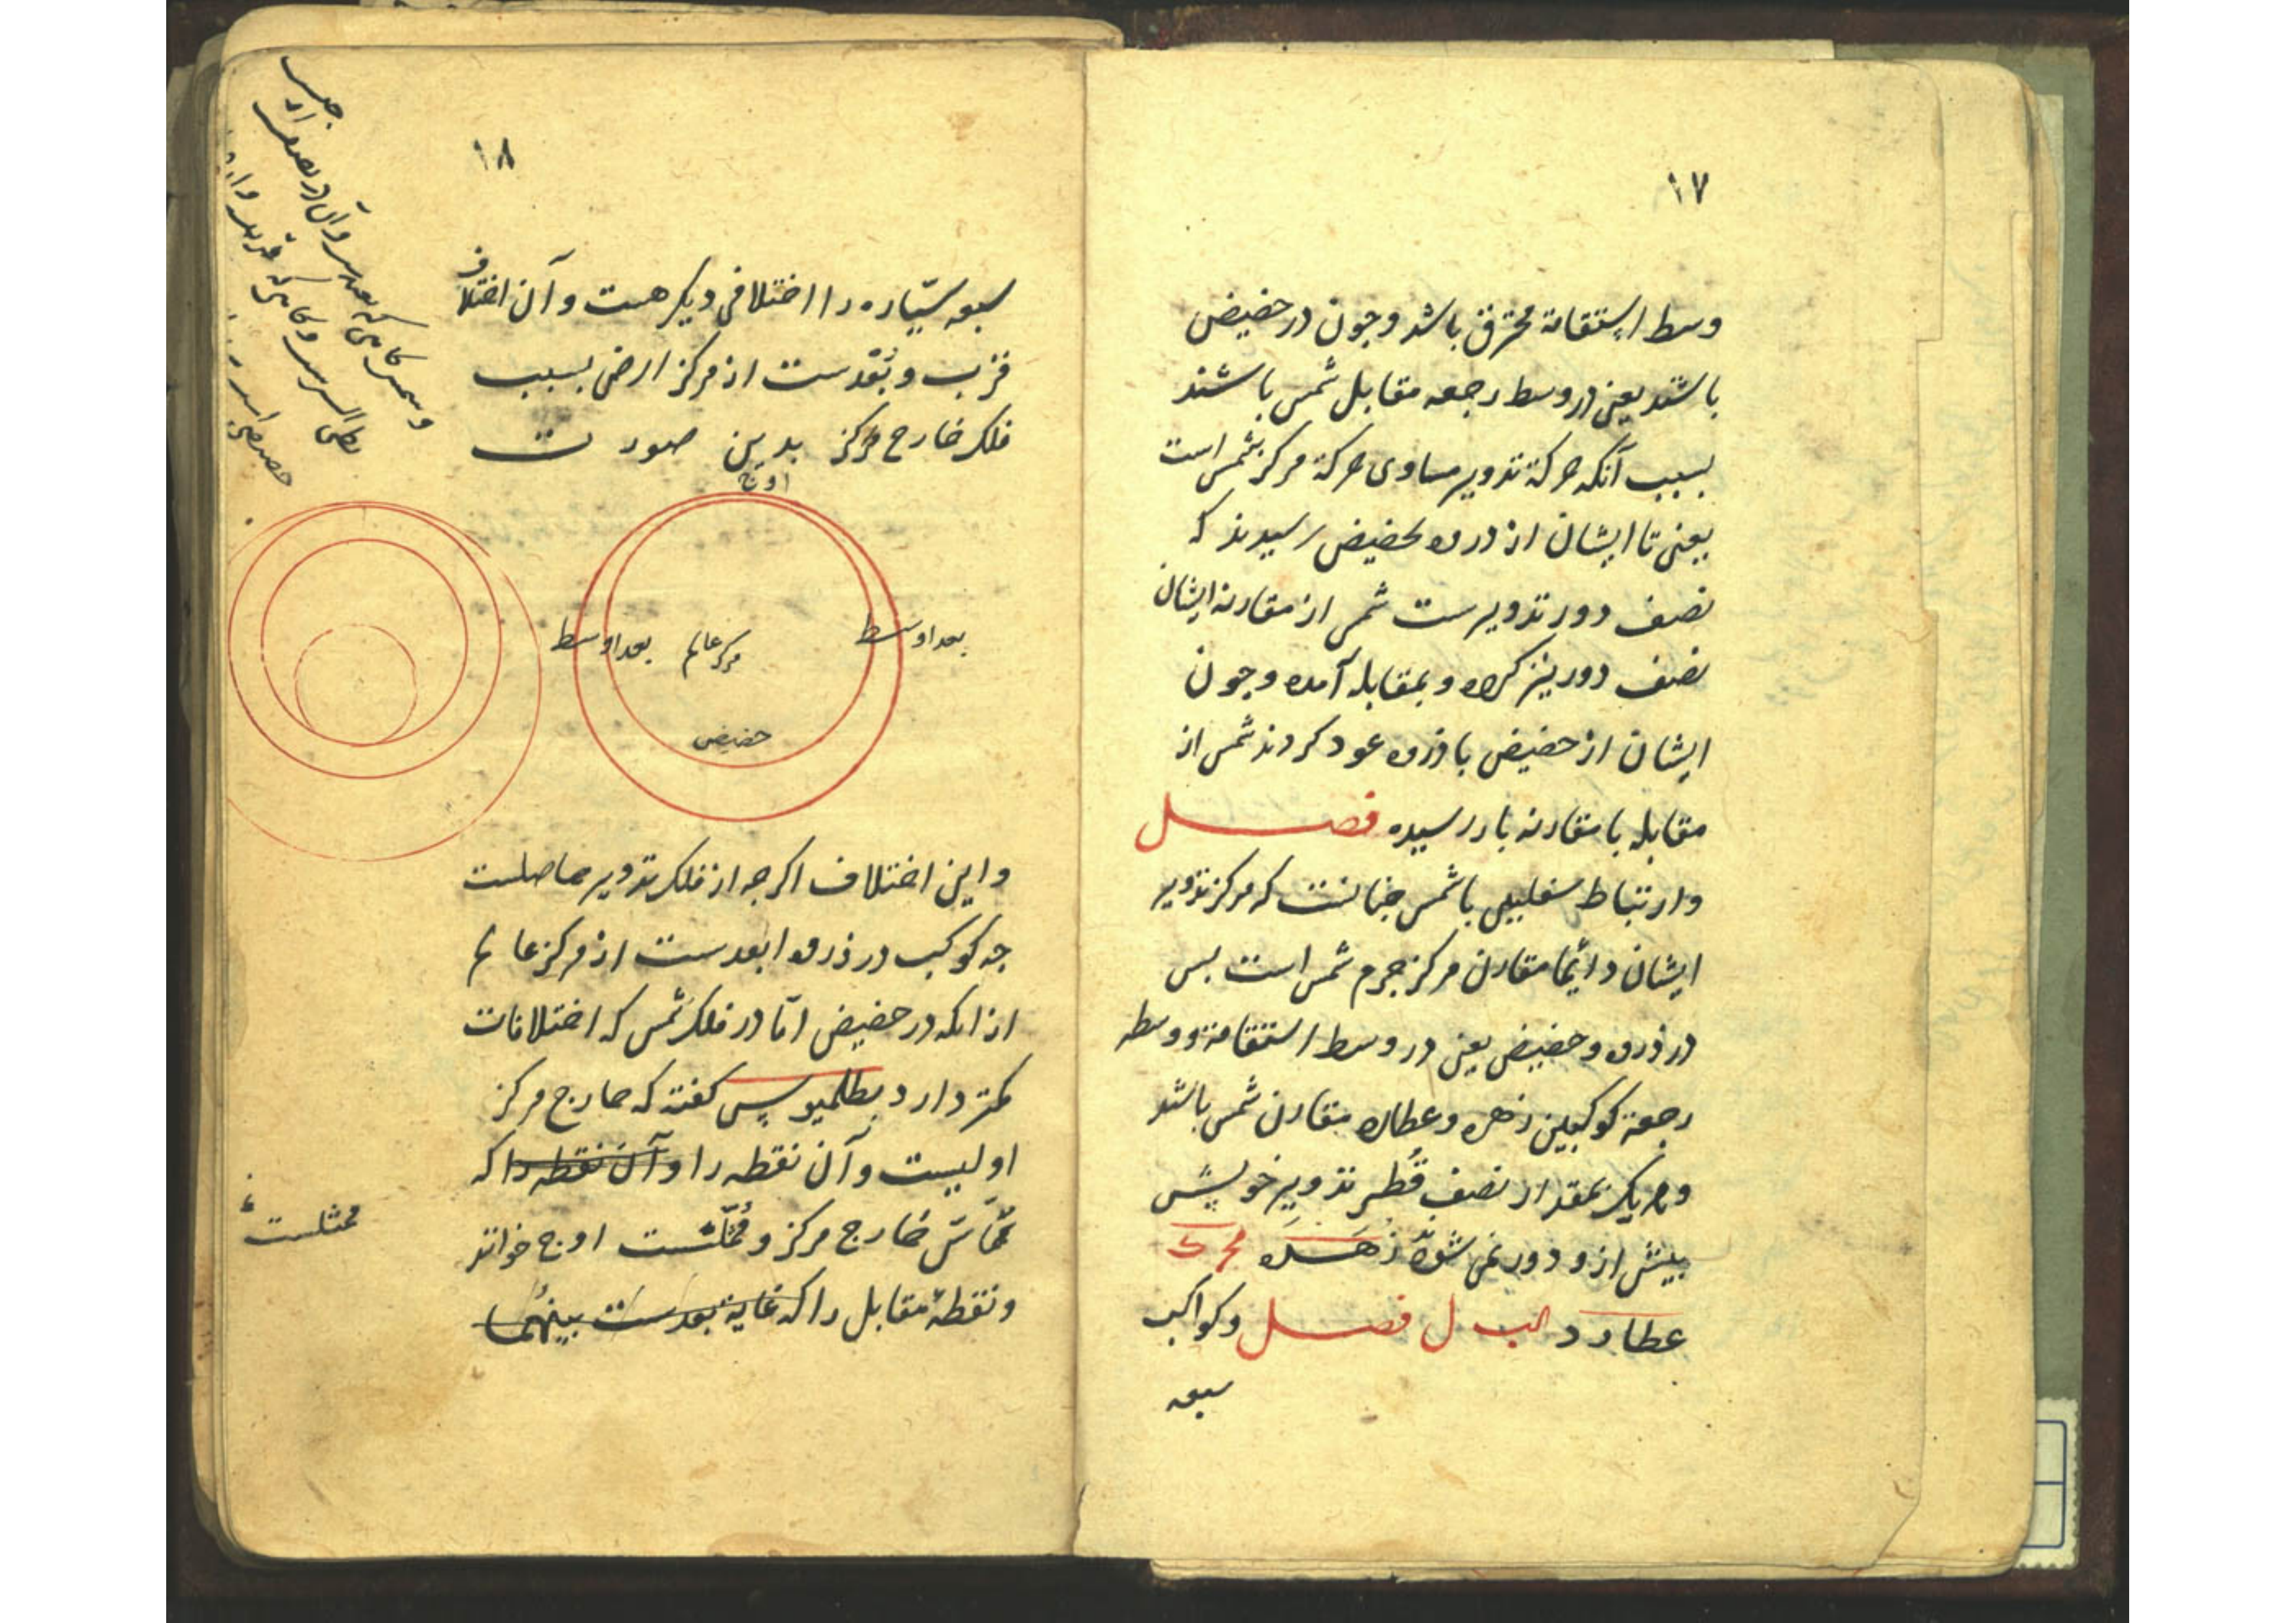 ۱۷
وسط استقامة محترق باشد وجون در حضیض
باشند یعنی در وسط رجعه مقابل شمس باشند
بسبب آنکه حرکة تدویر مساوی حرکة مرکز شمس است
یعنی تا ایشان از ذروه بحضیض رسیدند که
نصف دور تدویرست شمس از مقارنه ایشان
نصف دور نیز کرده و بمقابله آمده وجون
ایشان از حضیض با ذروه عود کردند شمس از
مقابله با مقارنه باز رسیده فصل
وارتباط سفلیین با شمس جنانست که مرکز تدویر
ایشان دائما مقارن مرکز جرم شمس است بس
در ذروه وحضیض یعنی در وسط استقامة ووسط
رجعة کوکبین زهره وعطارد مقارن شمس باشند
وهریک بمقدار نصف قُطر تدویر خویش
بیش ازو دور نمی شوند زهره
عطارد فصل وکواکب
سبعه
۱۸
سبعه سیّاره را اختلافی دیکر هست وآن اختلاف
قرب وبُعْدست از مرکز ارض بسبب
فلک خارج مرکز بدین صورت
اوج
بعد اوسط
مرکز عالم
بعد اوسط
حضیض
واین اختلاف اکرجه از فلک تدویر حاصلست
جه کوکب در ذروه ابعدست از مرکز عالم
از انکه در حضیض امّا در فلک شمس که اختلافات
کمتر دارد بطلمیوس کفته که خارج مرکز
اولیست وآن نقطه را وآن نقطه را که
مماسّ خارج مرکز و مُمثّلست اوج خوانند
ونقطهٔ مقابل را که غایة بعدست بینهُما
ممثلست